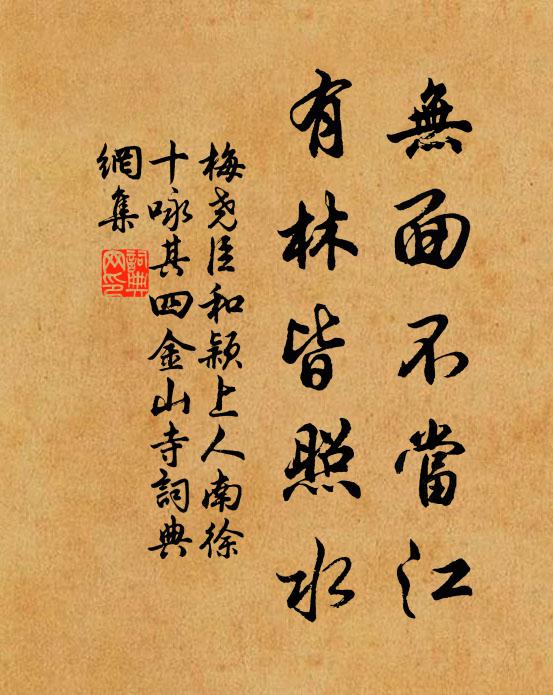 無面不當江
有林皆照水
梅尧臣和颖上人南徐
十咏其四金山寺詞典
網集
詞典
网印